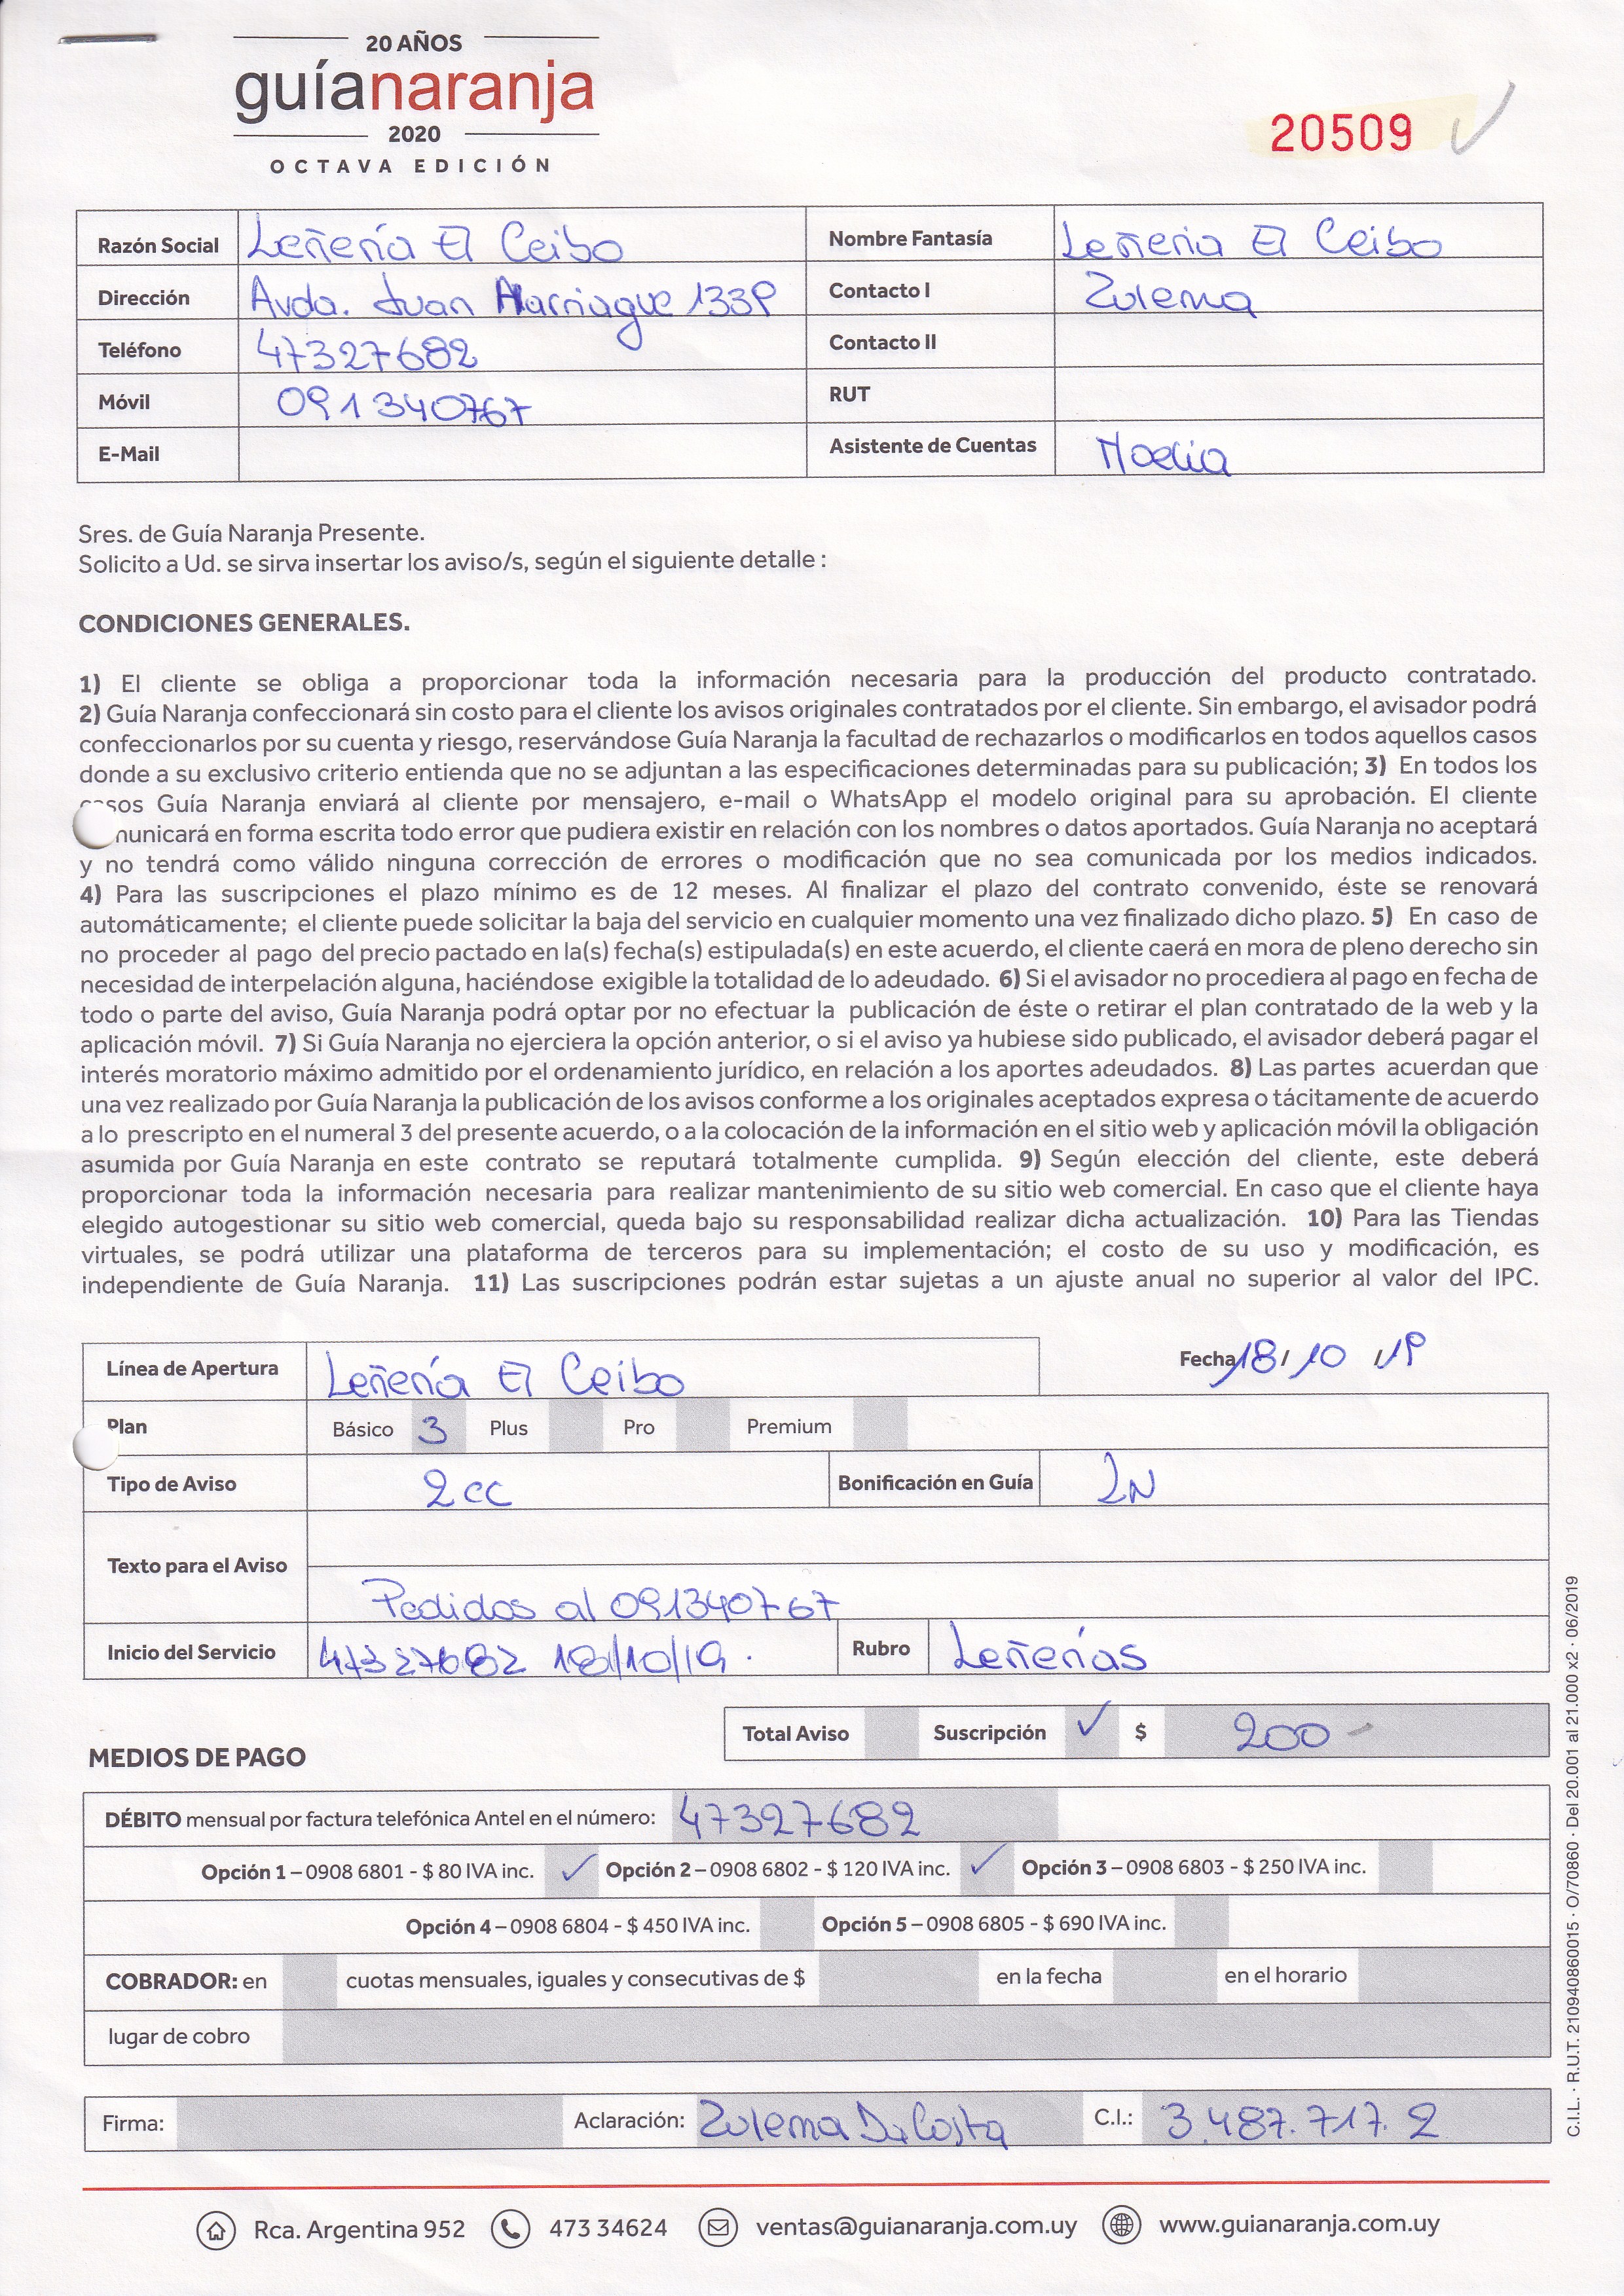 20 AÑOS
guíanaranja
2020
OCTAVA EDICIÓN
20509
Razón Social Leñería El Ceibo Nombre Fantasía Leñeria El Ceibo
Dirección Avda. Juan Harriague 1339 Contacto I Zulema
Teléfono 47327682 Contacto II
Móvil 091340767 RUT
E-Mail Asistente de Cuentas Noelia
Sres. de Guía Naranja Presente.
Solicito a Ud. se sirva insertar los aviso/s, según el siguiente detalle :
CONDICIONES GENERALES.
1) El cliente se obliga a proporcionar toda la información necesaria para la producción del producto contratado.
2) Guía Naranja confeccionará sin costo para el cliente los avisos originales contratados por el cliente. Sin embargo, el avisador podrá
confeccionarlos por su cuenta y riesgo, reservándose Guía Naranja la facultad de rechazarlos o modificarlos en todos aquellos casos
donde a su exclusivo criterio entienda que no se adjuntan a las especificaciones determinadas para su publicación; 3) En todos los
casos Guía Naranja enviará al cliente por mensajero, e-mail o WhatsApp el modelo original para su aprobación. El cliente
municará en forma escrita todo error que pudiera existir en relación con los nombres o datos aportados. Guía Naranja no aceptará
y no tendrá como válido ninguna corrección de errores o modificación que no sea comunicada por los medios indicados.
4) Para las suscripciones el plazo mínimo es de 12 meses. Al finalizar el plazo del contrato convenido, éste se renovará
automáticamente; el cliente puede solicitar la baja del servicio en cualquier momento una vez finalizado dicho plazo. 5) En caso de
no proceder al pago del precio pactado en la(s) fecha(s) estipulada(s) en este acuerdo, el cliente caerá en mora de pleno derecho sin
necesidad de interpelación alguna, haciéndose exigible la totalidad de lo adeudado. 6) Si el avisador no procediera al pago en fecha de
todo o parte del aviso, Guía Naranja podrá optar por no efectuar la publicación de éste o retirar el plan contratado de la web y la
aplicación móvil. 7) Si Guía Naranja no ejerciera la opción anterior, o si el aviso ya hubiese sido publicado, el avisador deberá pagar el
interés moratorio máximo admitido por el ordenamiento jurídico, en relación a los aportes adeudados. 8) Las partes acuerdan que
una vez realizado por Guía Naranja la publicación de los avisos conforme a los originales aceptados expresa o tácitamente de acuerdo
a lo prescripto en el numeral 3 del presente acuerdo, o a la colocación de la información en el sitio web y aplicación móvil la obligación
asumida por Guía Naranja en este contrato se reputará totalmente cumplida. 9) Según elección del cliente, este deberá
proporcionar toda la información necesaria para realizar mantenimiento de su sitio web comercial. En caso que el cliente haya
elegido autogestionar su sitio web comercial, queda bajo su responsabilidad realizar dicha actualización. 10) Para las Tiendas
virtuales, se podrá utilizar una plataforma de terceros para su implementación; el costo de su uso y modificación, es
independiente de Guía Naranja. 11) Las suscripciones podrán estar sujetas a un ajuste anual no superior al valor del IPC.
Línea de Apertura Leñería El Ceibo Fecha 18/ 10 /19
Plan Básico 3 Plus Pro Premium
Tipo de Aviso 2cc Bonificación en Guía LN
Texto para el Aviso
Pedidos al 091340767
Inicio del Servicio 47327682 18/10/19. Rubro Leñerías
Total Aviso Suscripción ✓ $ 200-
MEDIOS DE PAGO
DÉBITO mensual por factura telefónica Antel en el número: 47327682
Opción 1 – 0908 6801 - $ 80 IVA inc. ✓ Opción 2 – 0908 6802 - $ 120 IVA inc. ✓ Opción 3 – 0908 6803 - $ 250 IVA inc.
Opción 4 – 0908 6804 - $ 450 IVA inc. Opción 5 – 0908 6805 - $ 690 IVA inc.
COBRADOR: en cuotas mensuales, iguales y consecutivas de $ en la fecha en el horario
lugar de cobro
Firma: Aclaración: Zulema Da Costa C.I.: 3.487.717.2
C.I.L. · R.U.T. 210940860015 · O/70860 · Del 20.001 al 21.000 x2 · 06/2019
Rca. Argentina 952 473 34624 ventas@guianaranja.com.uy www.guianaranja.com.uy